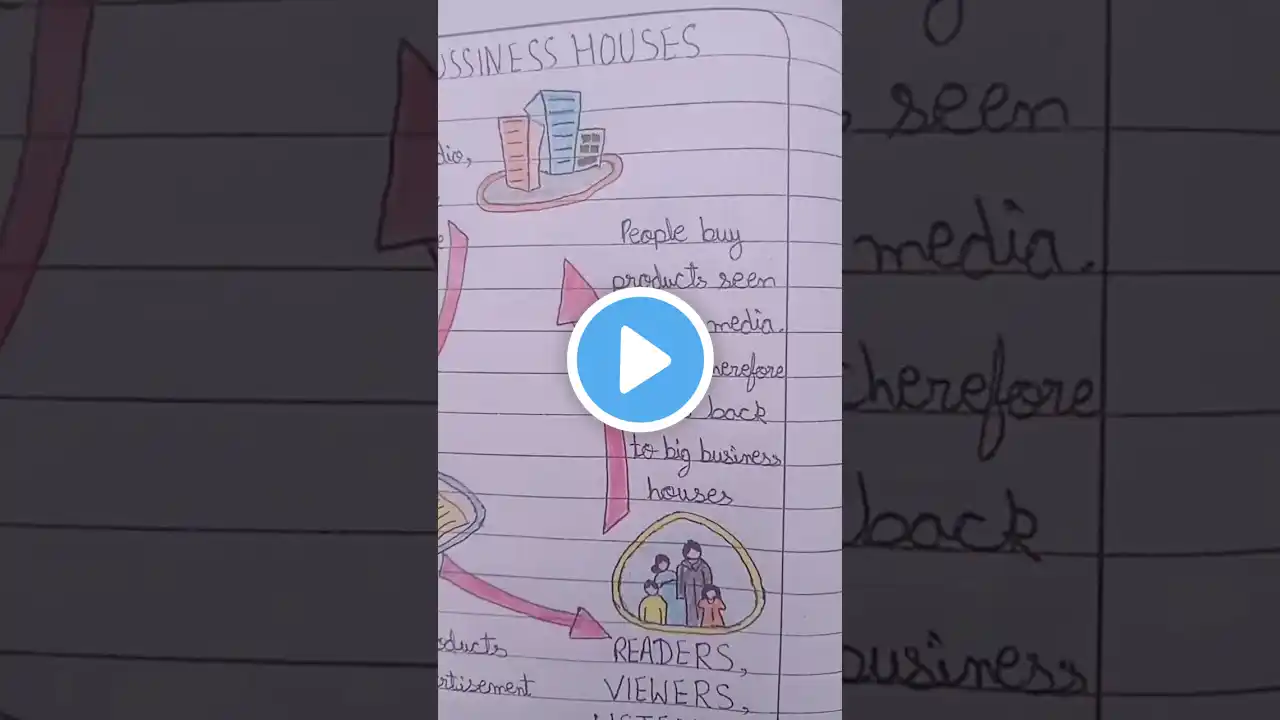 USSINESS HOUSES
dio,
People buy
products seen
media.
herefore
back
to big business
houses
oducts
rtisement
READERS,
VIEWERS,
seen
media.
herefore
back
business